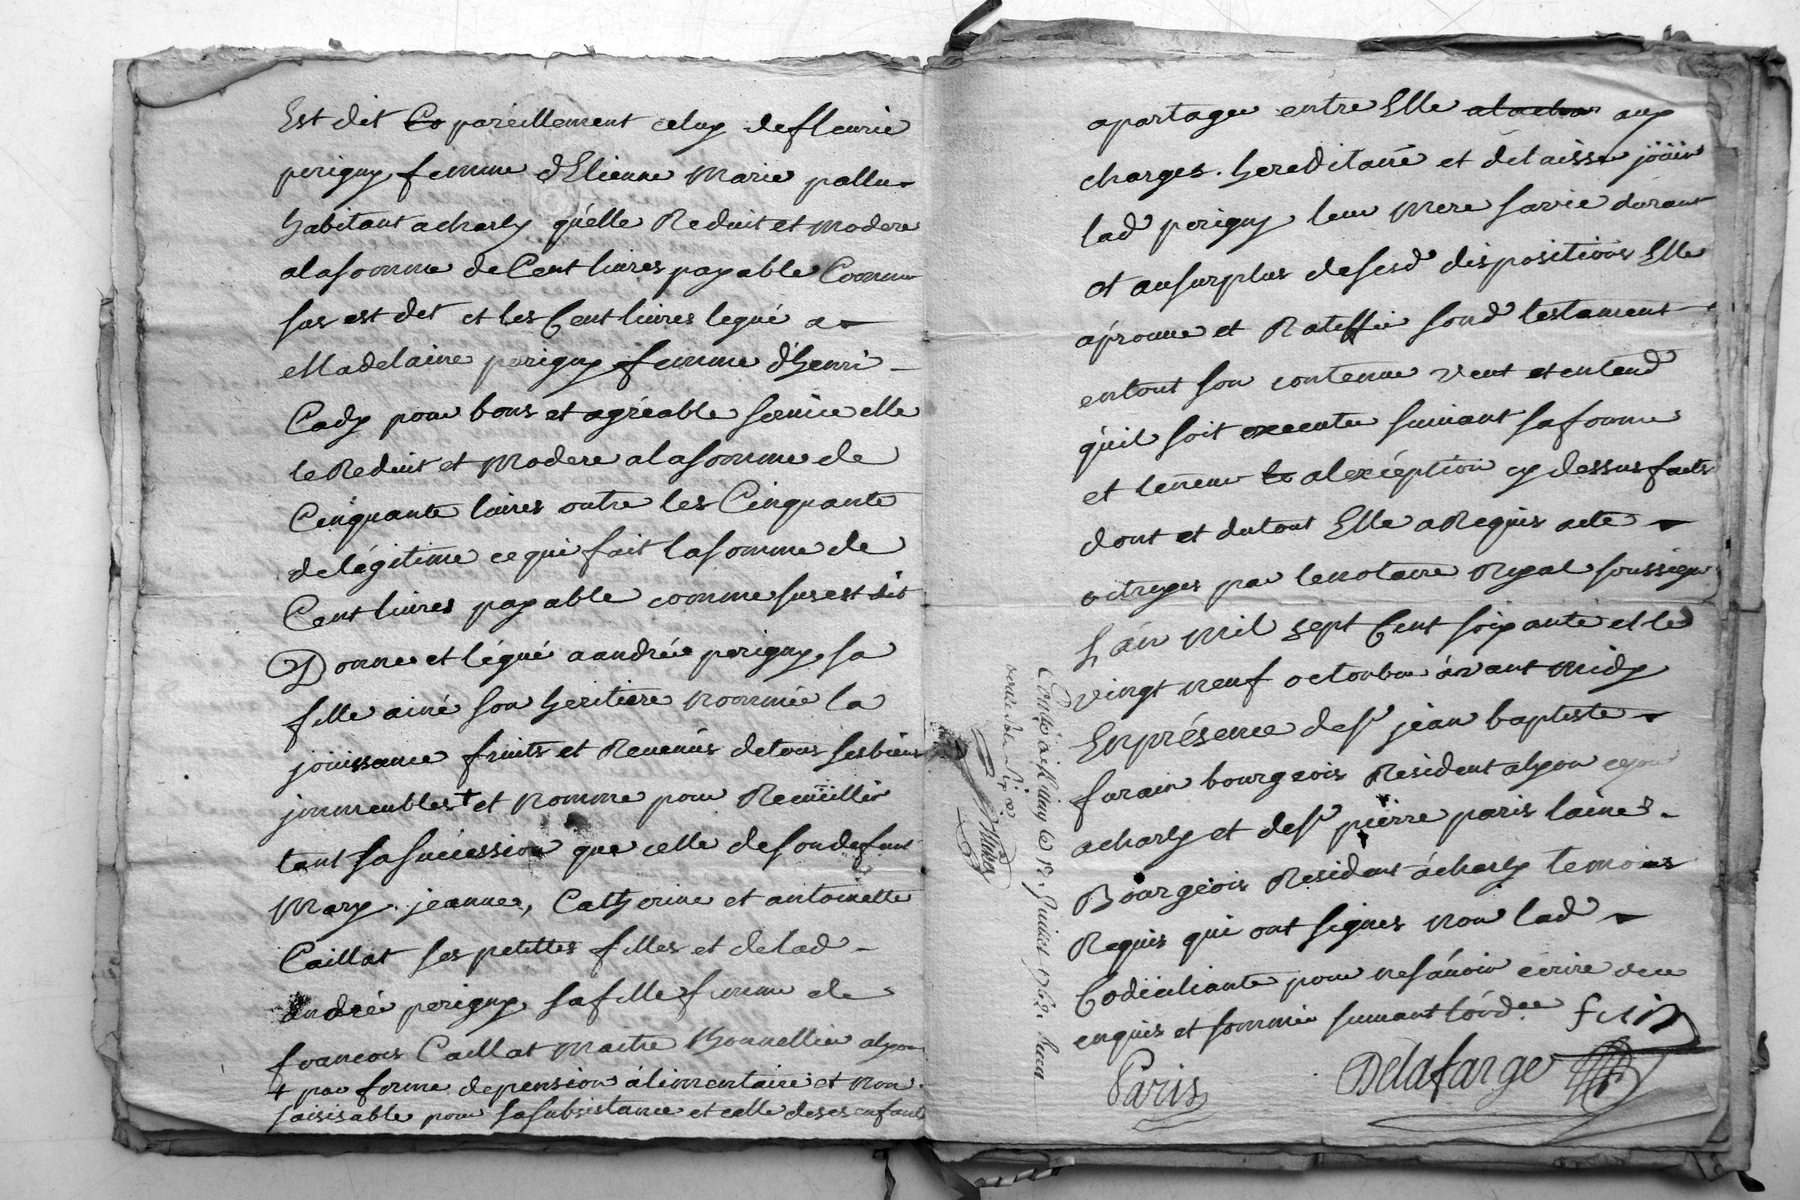 Est dit Co pareillement celuy de fleurie
perigny femme d'Etienne Marie pallu
habitant a charly qu'elle Reduit et modere
a la somme de Cent livres payable Comme
sus est dit et les Cent livres legué a
Madelaine perigny femme d'henri
Cady pour bons et agréable service elle
le Reduit et Modere a la somme de
Cinquante livres outre les Cinquante
de légitime ce qui fait la somme de
Cent livres payable comme sus est dit
Donne et légué a andrée perigny sa
fille ainé son heritiere nommée la
joüissance fruits et Revenus de tous ses biens
jmmeubles + et nomme pour Recüeillir
tant sa sucéssion que celle de son defunt
Mary jeanne, Catherine et antoinette
Caillat ses petittes filles et de lad
andrée perigny sa fille femme de
francois Caillat Maitre Bonnettier alyon
+ par forme de pension álimentaire et non
saisisable pour sa subsistance et celle de ses enfants
apartager entre Elle aux
charges hereditaire et délaisse joüir
lad perigny leur Mere sa vie durant
et au surplus de sesd dispositions Elle
áprouve et Ratiffie sond testament
en tout son contenue veut et entend
qu'il soit executer suivant sa forme
et teneur a l'excéption cy dessus faits
dont et du tout Elle a Requis acte
octroyes par le notaire Royal soussigné
L'án Mil sept Cent soixante et le
vingt neuf octoubre ávant midy
En présence de sr jean baptiste
farain bourgeois Resident alyon
acharly et de sr pierre paris lainé
Bourgeois Resident ácharly temoins
Requis qui ont signés non lad
Codiciliante pour ne sávoir écrire de ce
enquis et sommée suivant l'ord.ce
Paris Delafarge
Juillet 1762